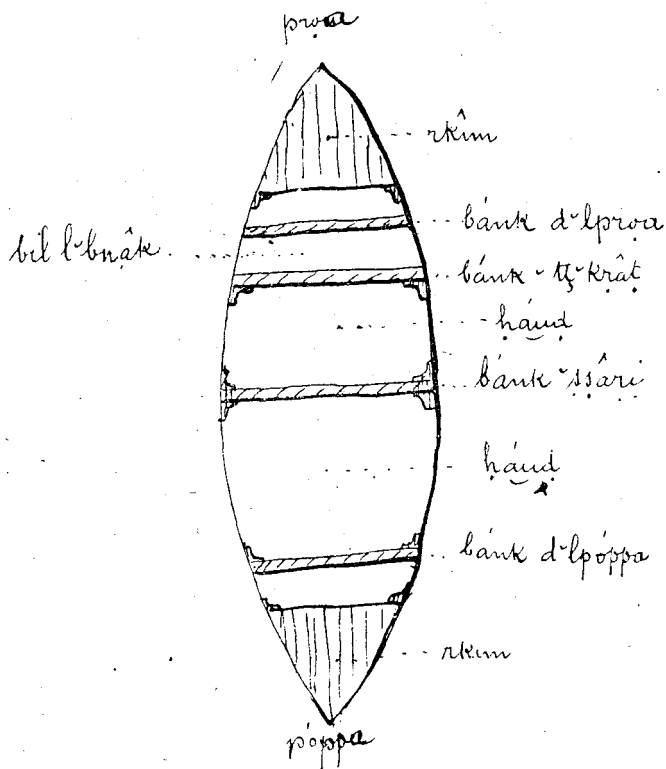 prọa
rkîm
bánk d˘lprọa
bil l˘bnậk
bánk ˘tţ˘krâṭ
ḥáuḍ
bánk ˘ṣṣâṛị
ḥáuḍ
bánk d˘lpóppa
rkım
póppa